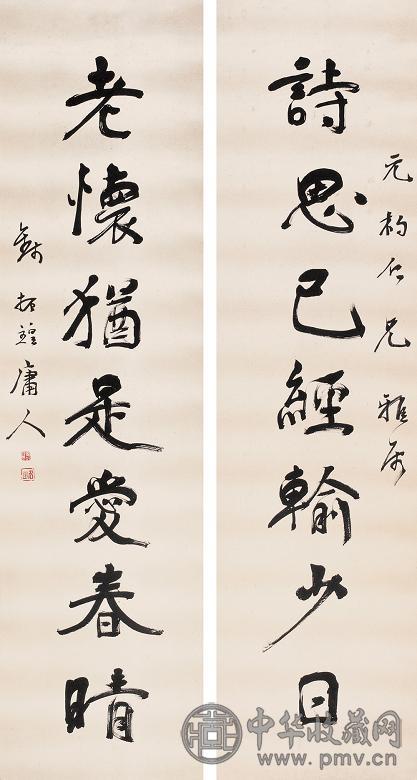 元仁兄雅屬
詩思已經輸少日
老懷猶是愛春晴
錢振鍠庸人
中华收藏网
www.pmv.cn